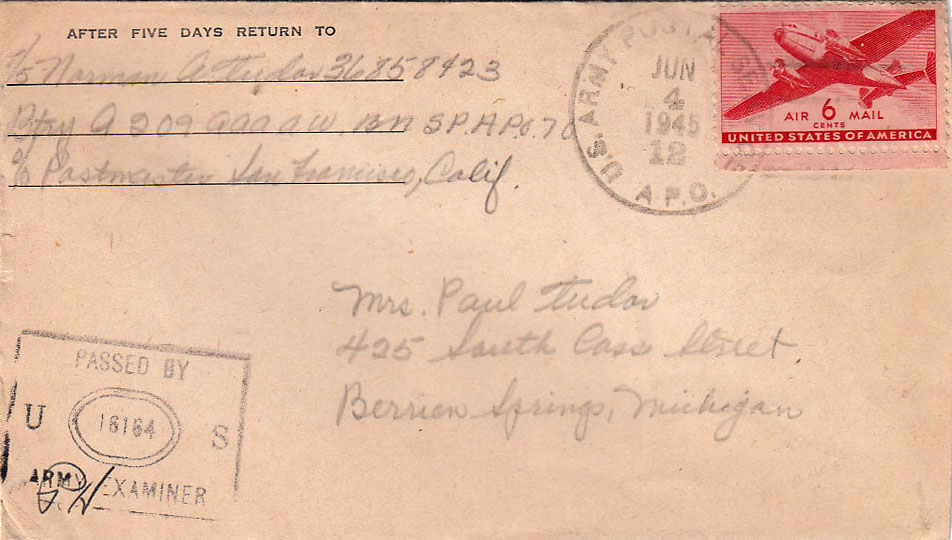 AFTER FIVE DAYS RETURN TO
T/5 Norman A Tudor 36858423
Btry A 209 AAA A.W. BN S.P. A.P.O. 70
c/o Postmaster San Francisco, Calif.
U.S. ARMY POSTAL
JUN
4
1945
12
A.P.O.
AIR 6 MAIL
CENTS
UNITED STATES OF AMERICA
Mrs. Paul Tudor
425 South Cass Street
Berrien Springs, Michigan
PASSED BY
U 16164 S
ARMY EXAMINER